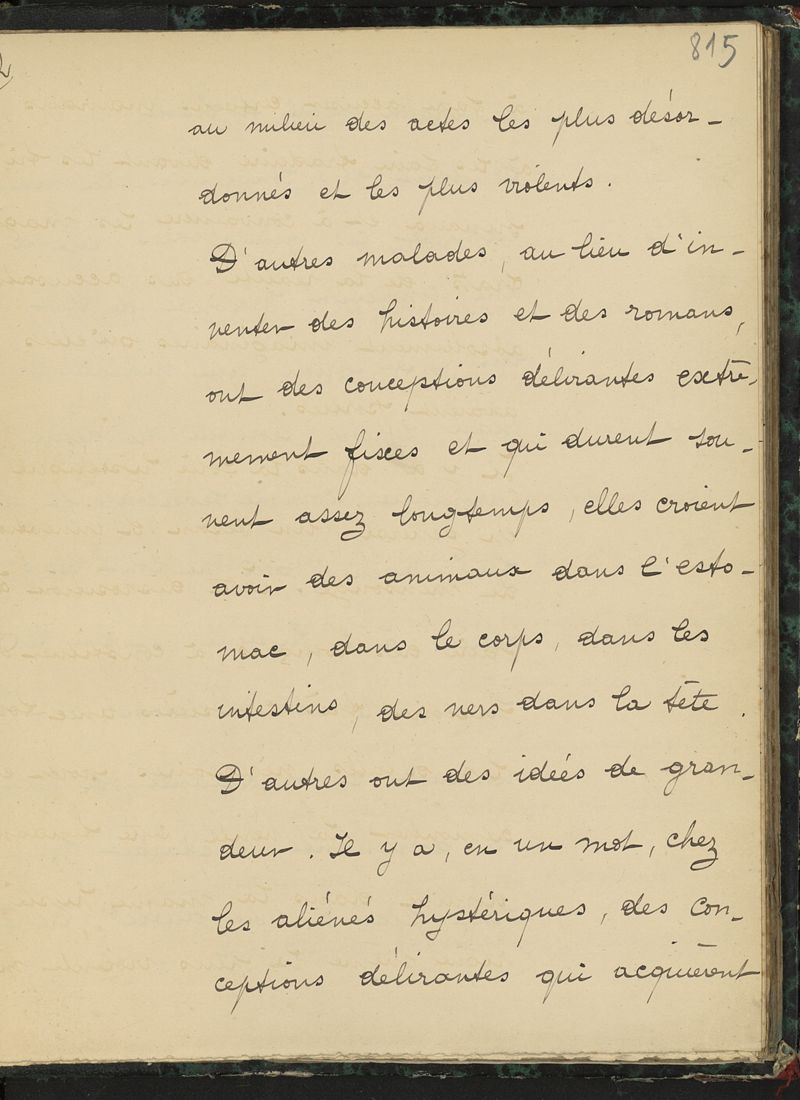 815
au milieu des actes les plus désor-
donnés et les plus violents.
D'autres malades, au lieu d'in-
venter des histoires et des romans,
ont des conceptions délirantes extrê-
mement fixes et qui durent sou-
vent assez longtemps, elles croient
avoir des animaux dans l'esto-
mac, dans le corps, dans les
intestins, des vers dans la tête.
D'autres ont des idées de gran-
deur. Il y a, en un mot, chez
les aliénés hystériques, des con-
ceptions délirantes qui acquièrent